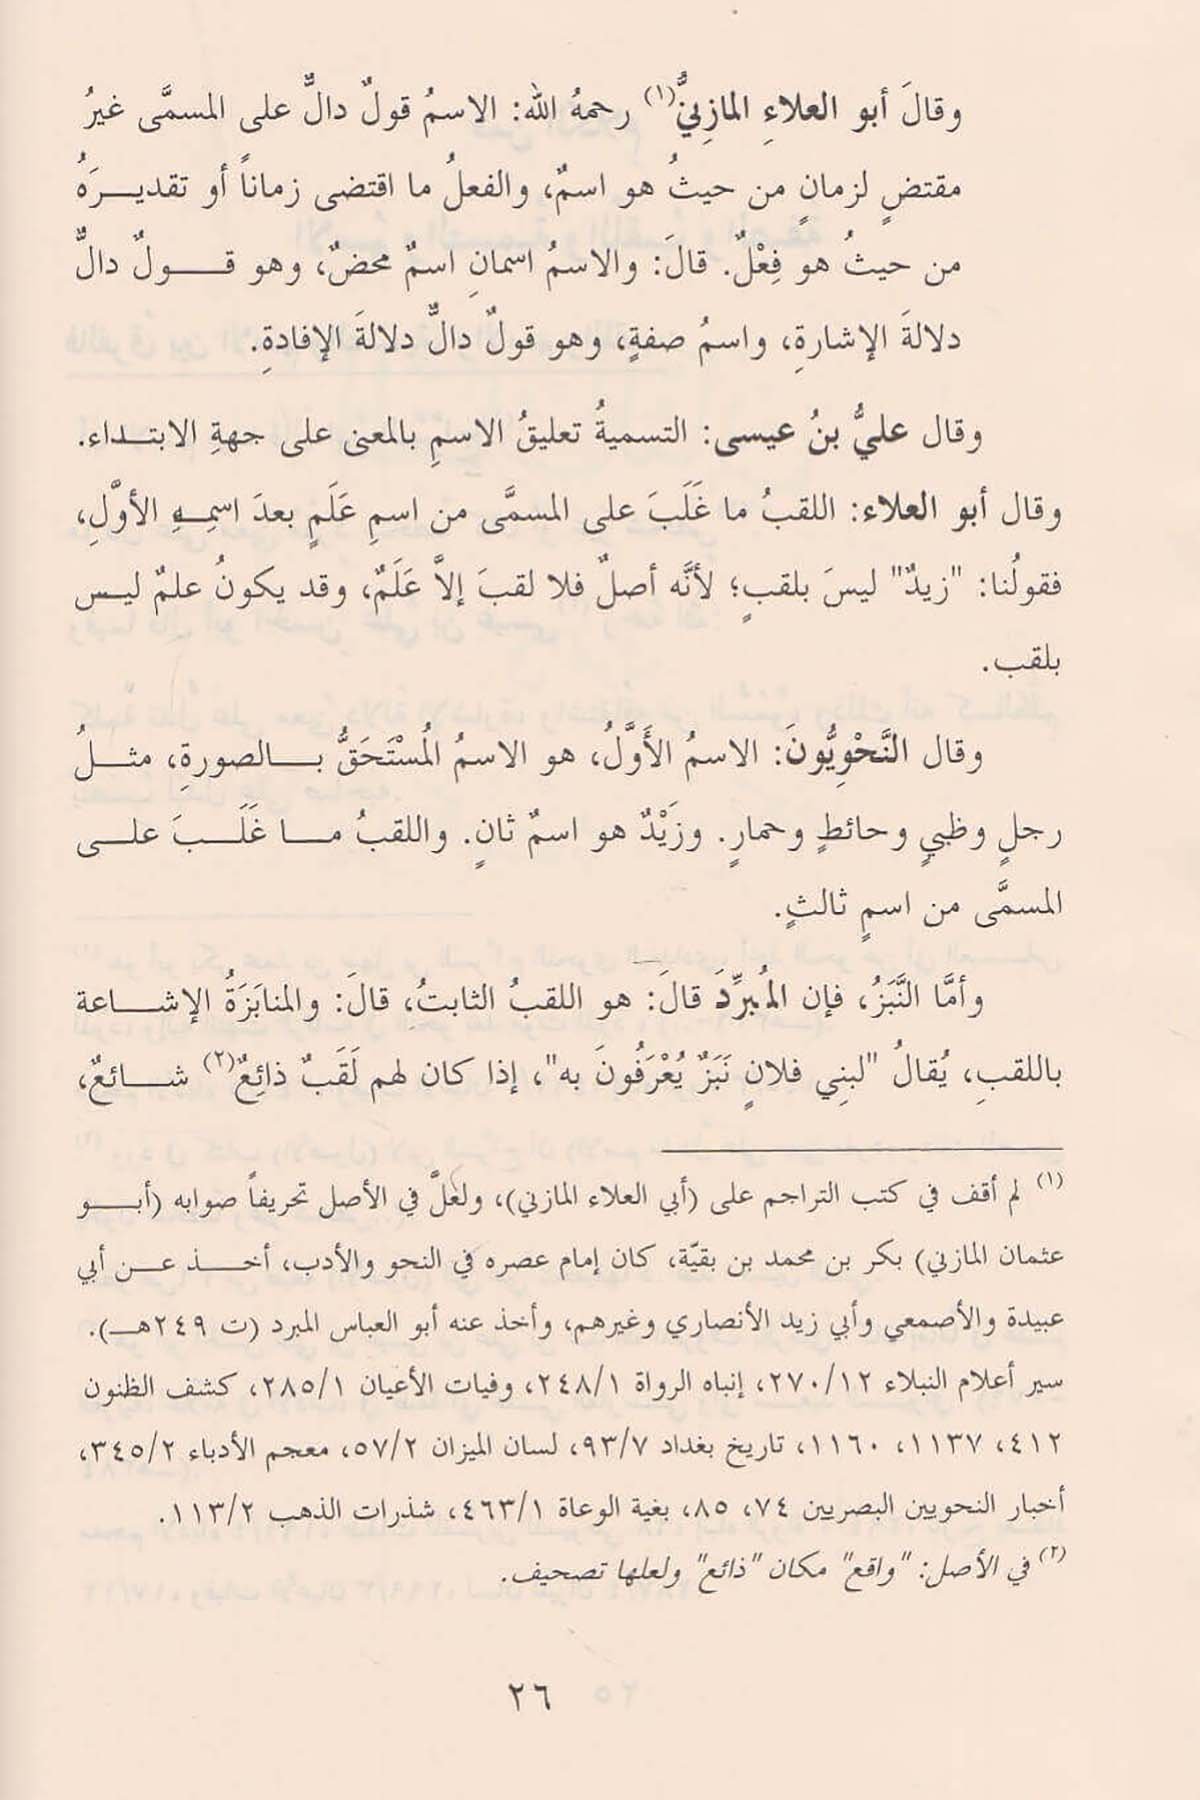 وقالَ أبو العلاءِ المازِنيُّ(١) رحمهُ الله: الاسمُ قولٌ دالٌّ على المسمَّى غيرُ
مقتضٍ لزمانٍ من حيثُ هو اسمٌ، والفعلُ ما اقتضى زماناً أو تقديرَهُ
من حيثُ هو فِعْلٌ. قالَ: والاسمُ اسمانِ اسمٌ محضٌ، وهو قولٌ دالٌّ
دلالةَ الإشارةِ، واسمُ صفةٍ، وهو قولٌ دالٌّ دلالةَ الإفادةِ.
وقال عليُّ بنُ عيسى: التسميةُ تعليقُ الاسمِ بالمعنى على جهةِ الابتداء.
وقال أبو العلاء: اللقبُ ما غَلَبَ على المسمَّى من اسمِ عَلَمٍ بعدَ اسمِهِ الأوَّلِ،
فقولُنا: "زيدٌ" ليسَ بلقبٍ؛ لأنَّه أصلٌ فلا لقبَ إلاَّ عَلَمٌ، وقد يكونُ علمٌ ليس
بلقب.
وقال النَّحْوِيُّونَ: الاسمُ الأَوَّلُ، هو الاسمُ المُسْتَحَقُّ بالصورةِ، مثلُ
رجلٍ وظبيٍ وحائطٍ وحمارٍ. وزَيْدٌ هو اسمٌ ثانٍ. واللقبُ ما غَلَبَ على
المسمَّى من اسمٍ ثالثٍ.
وأمَّا النَّبَزُ، فإن المُبرِّدَ قالَ: هو اللقبُ الثابتُ، قالَ: والمنابَزَةُ الإشاعة
باللقبِ، يُقالُ "لبنِي فلانٍ نَبَزٌ يُعْرَفُونَ به"، إذا كان لهم لَقَبٌ ذائِعٌ(٢) شائعٌ،
(١) لم أقف في كتب التراجم على (أبي العلاء المازني)، ولعلَّ في الأصل تحريفاً صوابه (أبو
عثمان المازني) بكر بن محمد بن بقيّة، كان إمام عصره في النحو والأدب، أخذ عن أبي
عبيدة والأصمعي وأبي زيد الأنصاري وغيرهم، وأخذ عنه أبو العباس المبرد (ت ٢٤٩هـ).
سير أعلام النبلاء ٢٧٠/١٢، إنباه الرواة ٢٤٨/١، وفيات الأعيان ٢٨٥/١، كشف الظنون
٤١٢، ١١٣٧، ١١٦٠، تاريخ بغداد ٩٣/٧، لسان الميزان ٥٧/٢، معجم الأدباء ٣٤٥/٢،
أخبار النحويين البصريين ٧٤، ٨٥، بغية الوعاة ٤٦٣/١، شذرات الذهب ١١٣/٢.
(٢) في الأصل: "واقع" مكان "ذائع" ولعلها تصحيف.
٢٦